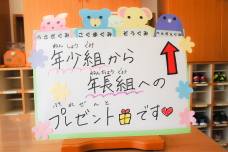 うさぎぐみ こぐまぐみ ぞうぐみ
ねんしょうぐみ
年少組から
ねんちょうぐみ
年長組への
ぷれぜんと
プレゼントです